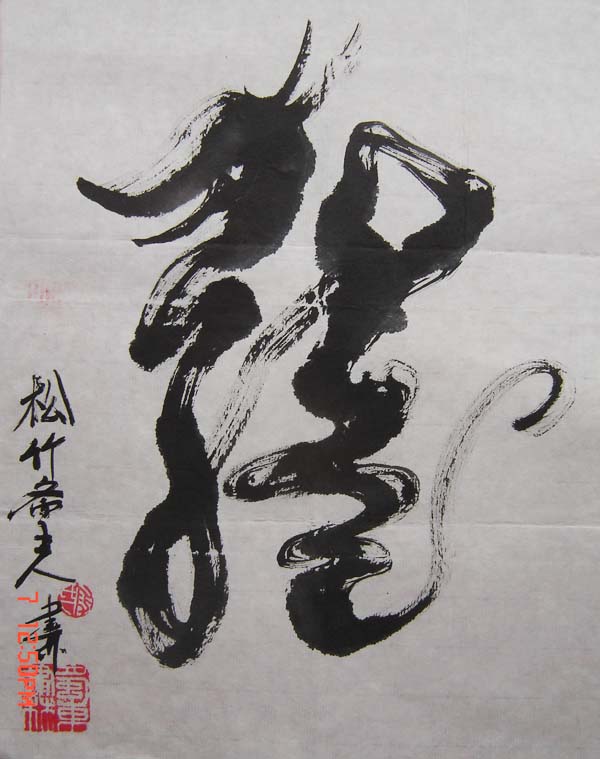 龍
松竹斋主人書
7 12:50PM